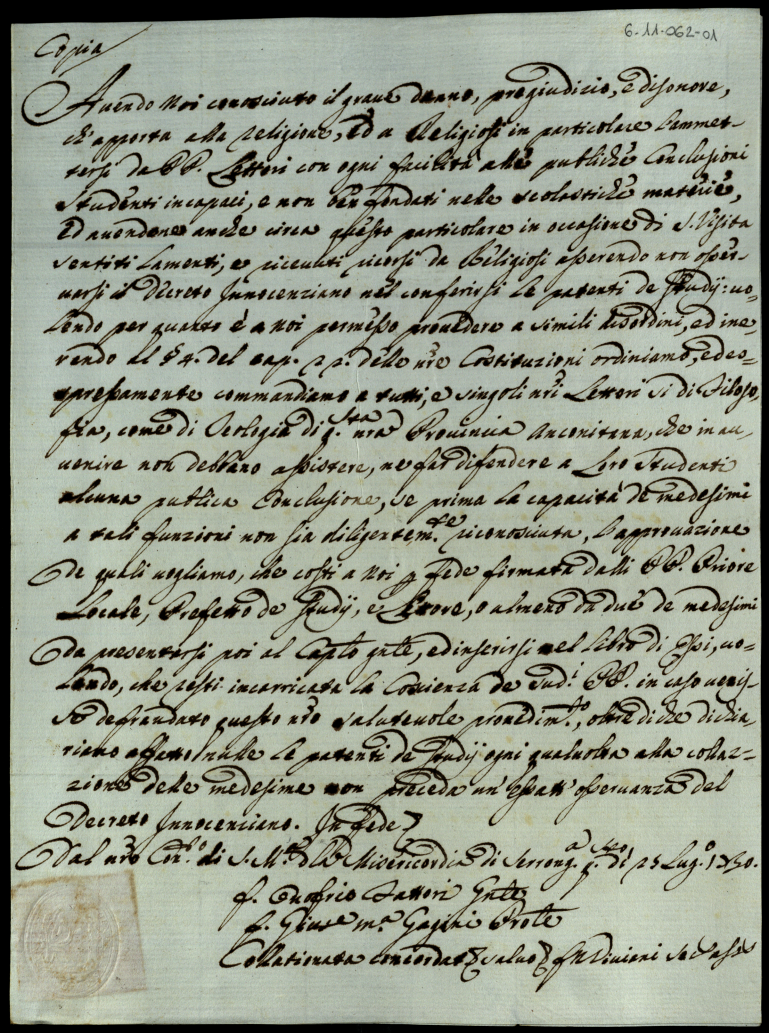 6-11-062-01
Copia
Avendo Noi conosciuto il grave danno, pregiudizio, e disonore,
ch'apporta alla Religione, ed a Religiosi in particolare l'ammet-
tersi da PP. Lettori con ogni facilità alle publiche Conclusioni
studenti incapaci, e non ben fondati nelle scolastiche materie,
ed avendone anche circa questo particolare in occasione di S. Visita
sentiti lamenti, e ricevuti ricorsi da Religiosi asserendo non osser-
varsi il Decreto Innocenziano nel conferirsi le patenti de Studij: vo-
lendo per quanto è a noi permesso provedere a simili disordini, ed ine-
rendo al § 4. del cap. 22. delle nre Costituzioni ordiniamo, ed es-
pressamente commandiamo a tutti, e singoli nri Lettori si di Filoso-
fia, come di Teologia di q.sta nra Provincia Anconitana, che in av-
venire non debbano assistere, ne far difendere a loro studenti
alcuna publica Conclusione, se prima la capacità de medesimi
a tali funzioni non sia diligentem.te riconosciuta, l'approvazione
de quali vogliamo, che costi a Noi p fede firmata dalli PP. Priore
Locale, Prefetto de Studij, e Lettore, o almeno da due de medesimi
da presentarsi poi al Caplo gnle, ed inscrirsi nel Libro di Essi, vo-
lendo, che resti incarricata la Coscienza de sud.i PP. in caso venis-
se defraudato questo nro salutevole provedim.to, oltre di che dichia-
riamo affatto nulle le patenti de Studij ogni qualvolta alla collaz-
zione delle medesime non preceda un'esatt'osservanza del
Decreto Innocenziano. In fede
Dal nro Con.to di S. M.a della Misericordia di Serrung.a q.sto di 25 Lug.o 1730.
f. Onofrio Sattori Gnle
f. Gius.e m.a Gagini Prole
Collationata concordat salvo